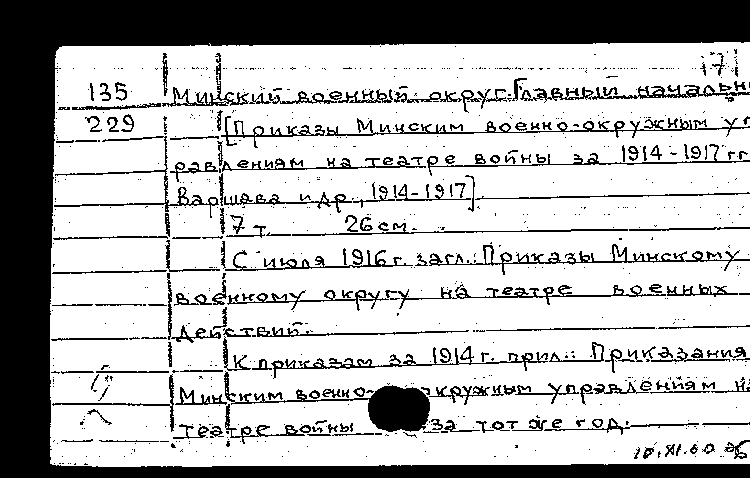 17
135 Минский военный округ. Главный начальн
229 [Приказы Минским военно-окружным уп
равлениям на театре войны за 1914-1917 гг
Варшава и др., 1914-1917].
7 т. 26 см.
С июля 1916 г. загл.: Приказы Минскому
военному округу на театре военных
действий.
К приказам за 1914 г. прил.: Приказания
Минским военно-окружным управлениям на
театре войны за тот же год.
10.XI.60